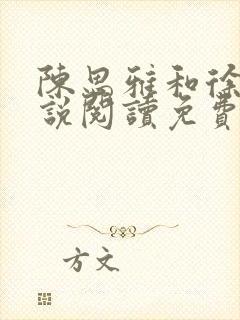 陳思雅和徐
說閱讀免費
方文